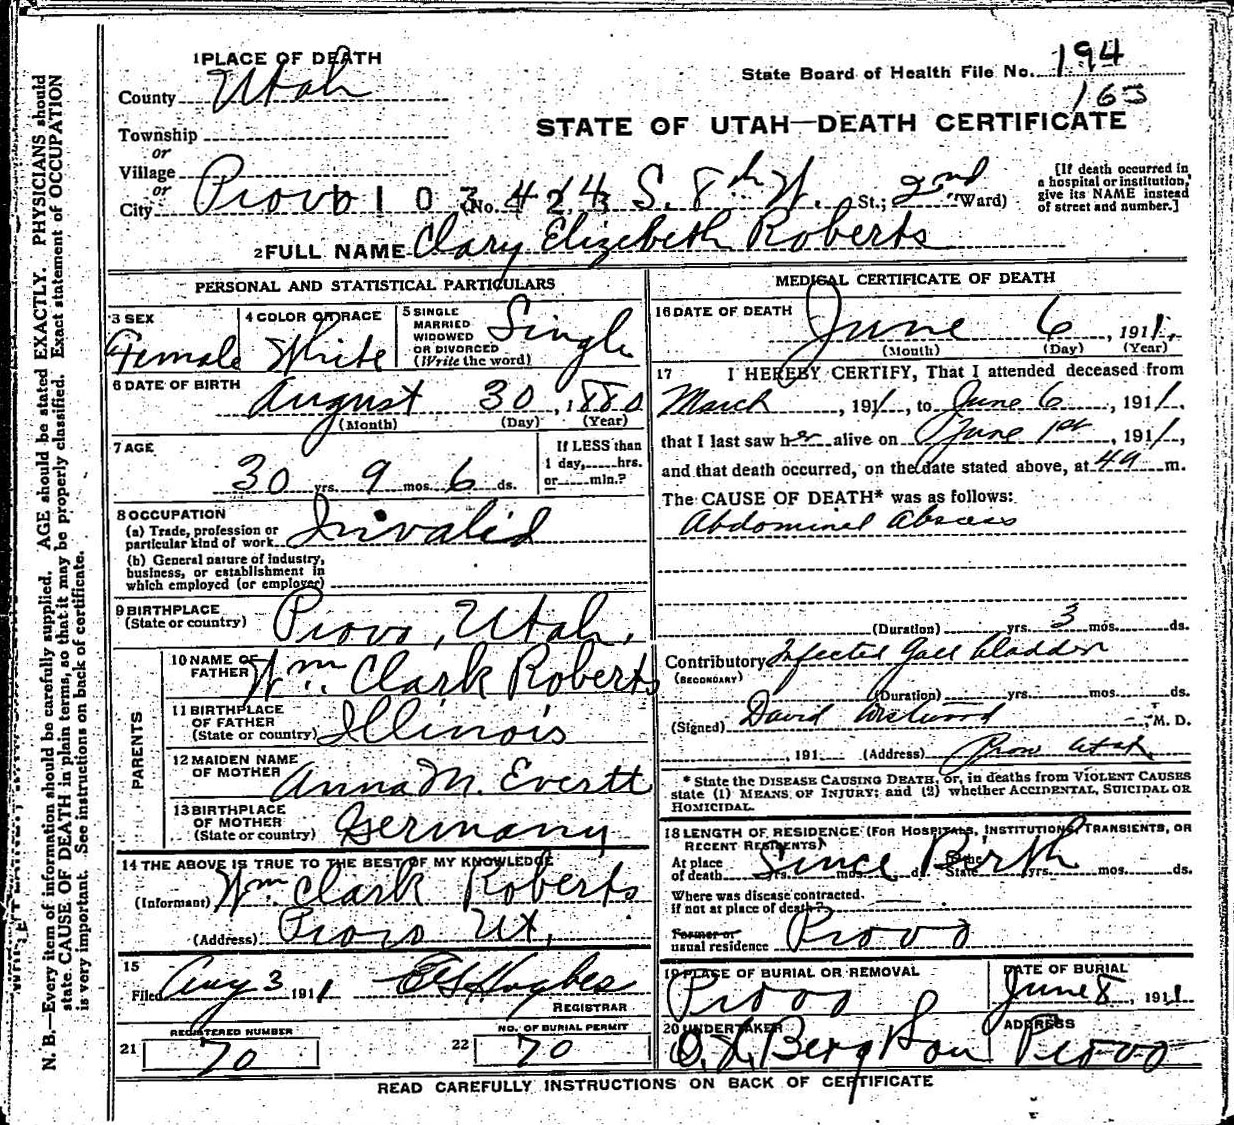 1 PLACE OF DEATH
County Utah
State Board of Health File No. 194
163
STATE OF UTAH—DEATH CERTIFICATE
Township
or
Village
or
City Provo 1 0 3 (No. 424 S. 8th W. St.; 2nd Ward)
[If death occurred in a hospital or institution, give its NAME instead of street and number.]
2 FULL NAME Clary Elizebeth Roberts
PERSONAL AND STATISTICAL PARTICULARS
3 SEX Female
4 COLOR OR RACE White
5 SINGLE MARRIED WIDOWED OR DIVORCED (Write the word) Single
6 DATE OF BIRTH August 30, 1880
(Month) (Day) (Year)
7 AGE 30 yrs. 9 mos. 6 ds.
If LESS than 1 day, hrs. or min.?
8 OCCUPATION
(a) Trade, profession or particular kind of work Invalid
(b) General nature of industry, business, or establishment in which employed (or employer)
9 BIRTHPLACE (State or country) Provo, Utah.
PARENTS
10 NAME OF FATHER Wm. Clark Roberts
11 BIRTHPLACE OF FATHER (State or country) Illinois
12 MAIDEN NAME OF MOTHER Anna M. Evertt
13 BIRTHPLACE OF MOTHER (State or country) Germany
14 THE ABOVE IS TRUE TO THE BEST OF MY KNOWLEDGE
(Informant) Wm. Clark Roberts
(Address) Provo Ut.
15
Filed Aug 3 1911 Hughes
REGISTRAR
REGISTERED NUMBER
21 70
NO. OF BURIAL PERMIT
22 70
MEDICAL CERTIFICATE OF DEATH
16 DATE OF DEATH June 6, 1911.
(Month) (Day) (Year)
17 I HEREBY CERTIFY, That I attended deceased from
March, 1911, to June 6, 1911.
that I last saw her alive on June 1st, 1911,
and that death occurred, on the date stated above, at 4 a m.
The CAUSE OF DEATH* was as follows:
Abdominal Abscess
(Duration) yrs. 3 mos. ds.
Contributory (SECONDARY) Infected Gall bladder
(Duration) yrs. mos. ds.
(Signed) David Westwood M. D.
, 191 (Address) Provo Utah
* State the DISEASE CAUSING DEATH, or, in deaths from VIOLENT CAUSES
state (1) MEANS OF INJURY; and (2) whether ACCIDENTAL, SUICIDAL OR
HOMICIDAL.
18 LENGTH OF RESIDENCE (FOR HOSPITALS, INSTITUTIONS, TRANSIENTS, OR
RECENT RESIDENTS)
At place of death yrs. mos. ds. State yrs. mos. ds. Since Birth
Where was disease contracted.
if not at place of death?
Former or usual residence Provo
19 PLACE OF BURIAL OR REMOVAL Provo
DATE OF BURIAL June 8, 1911
20 UNDERTAKER O. H. Berg & Son
ADDRESS Provo
READ CAREFULLY INSTRUCTIONS ON BACK OF CERTIFICATE
N. B.—Every item of information should be carefully supplied. AGE should be stated EXACTLY. PHYSICIANS should
state CAUSE OF DEATH in plain terms, so that it may be properly classified. Exact statement of OCCUPATION
is very important. See instructions on back of certificate.